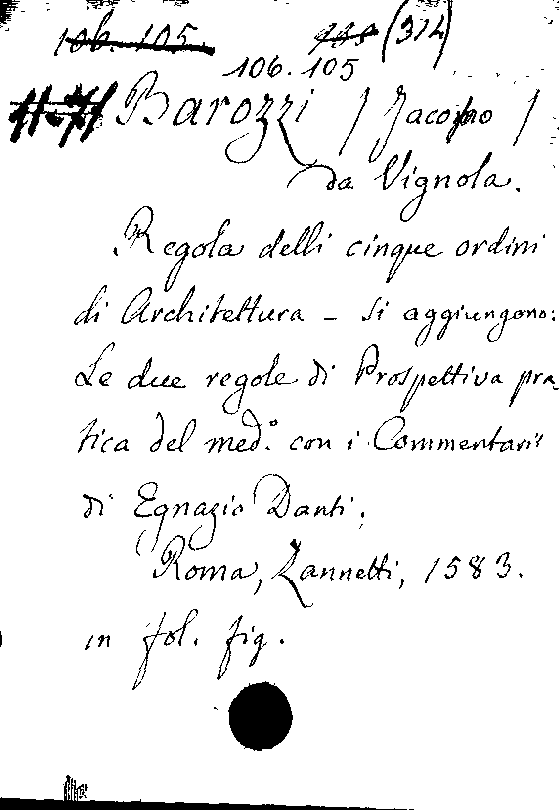 106. 105. (314)
106.105
Barozzi / Jacopo /
da Vignola.
Regola delli cinque ordini
di Architettura - Si aggiungono:
Le due regole di Prospettiva pra
tica del med.º con i Commentarii
di Egnazio Danti.
Roma, Zannetti, 1583.
in fol. fig.